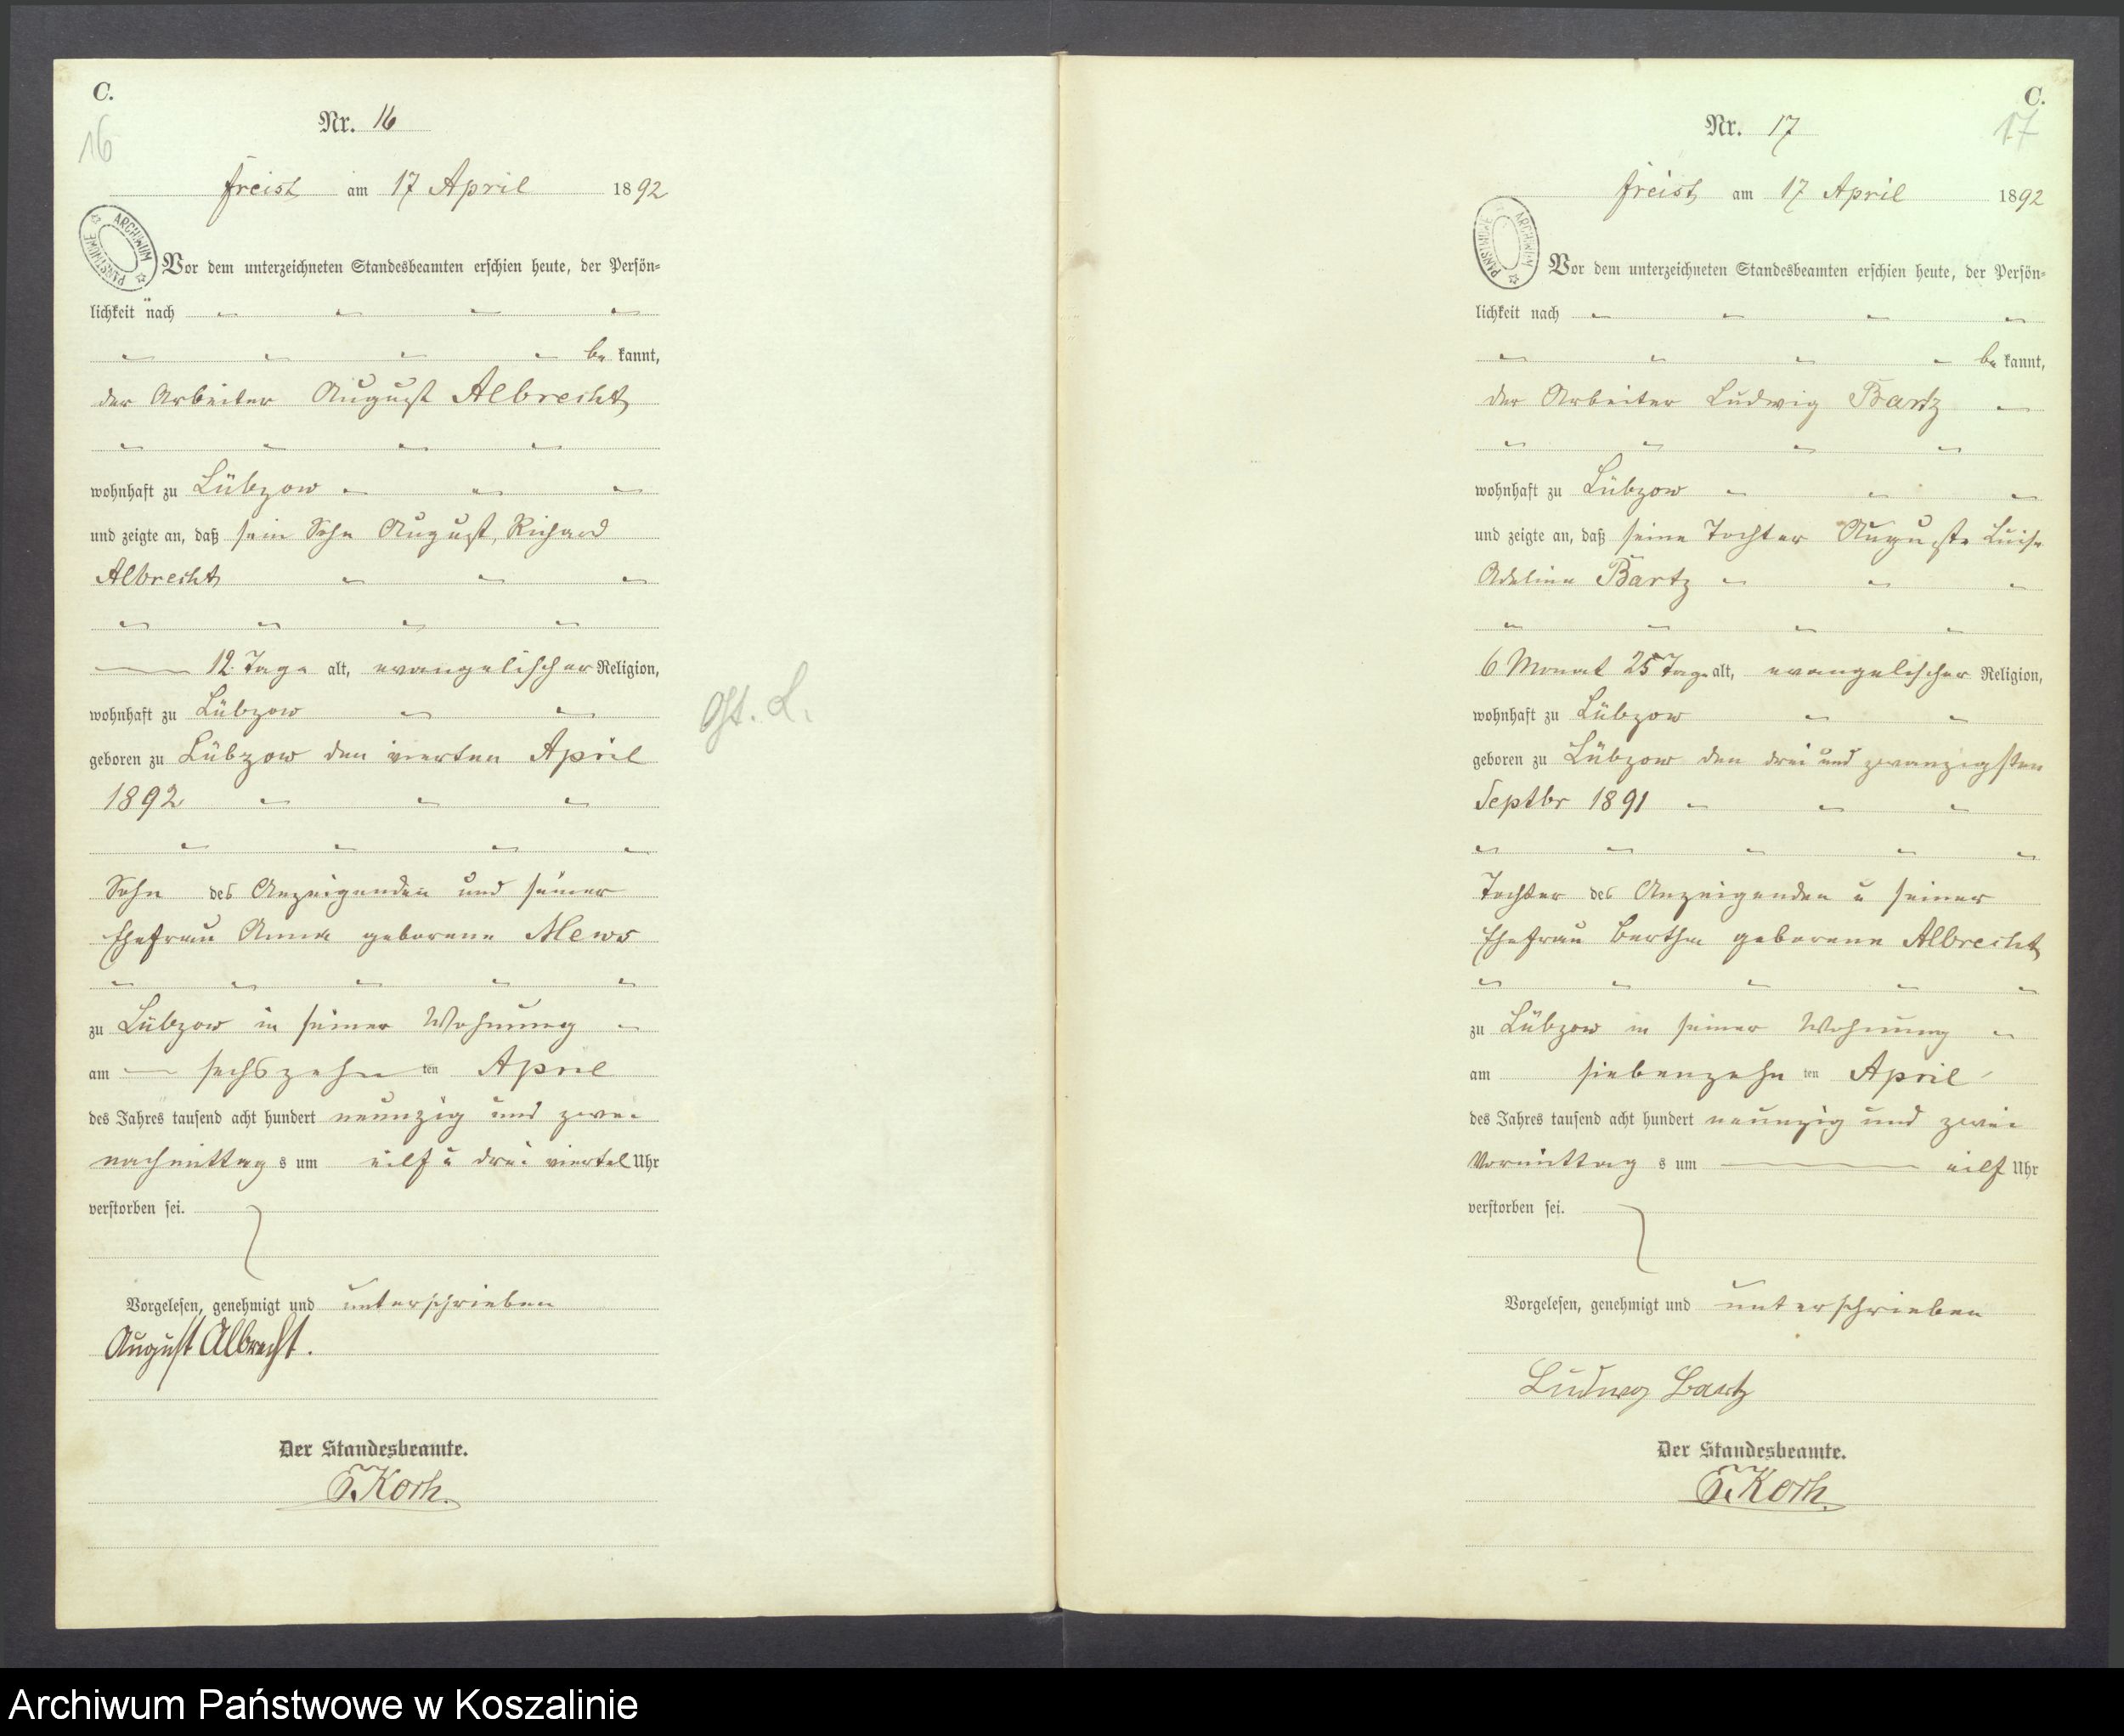 C.
16
Nr. 16
Freist am 17 April 1892
ARCHIWUM PAŃSTWOWE
Vor dem unterzeichneten Standesbeamten erschien heute, der Persön=
lichkeit nach
be kannt,
der Arbeiter August Albrecht
wohnhaft zu Lübzow
und zeigte an, daß sein Sohn August, Richard
Albrecht
12 Tage alt, evangelischer Religion,
wohnhaft zu Lübzow
geboren zu Lübzow den vierten April
1892
Sohn des Anzeigenden und seiner
Ehefrau Anna geborene Mews
zu Lübzow in seiner Wohnung
am sechszehn ten April
des Jahres tausend acht hundert neunzig und zwei
nachmittag s um eilf u drei viertel Uhr
verstorben sei.
Vorgelesen, genehmigt und unterschrieben
August Albrecht.
Der Standesbeamte.
E. Koch.
C.
17
Nr. 17
Freist am 17 April 1892
ARCHIWUM PAŃSTWOWE
Vor dem unterzeichneten Standesbeamten erschien heute, der Persön=
lichkeit nach
be kannt,
der Arbeiter Ludwig Bartz
wohnhaft zu Lübzow
und zeigte an, daß seine Tochter Auguste Luise
Adeline Bartz
6 Monat 25 Tage alt, evangelischer Religion,
wohnhaft zu Lübzow
geboren zu Lübzow den drei und zwanzigsten
Septbr 1891
Tochter des Anzeigenden u seiner
Ehefrau Bertha geborene Albrecht
zu Lübzow in seiner Wohnung
am siebenzehn ten April
des Jahres tausend acht hundert neunzig und zwei
Vormittag s um eilf Uhr
verstorben sei.
Vorgelesen, genehmigt und unterschrieben
Ludwig Bartz
Der Standesbeamte.
E. Koch.
Archiwum Państwowe w Koszalinie